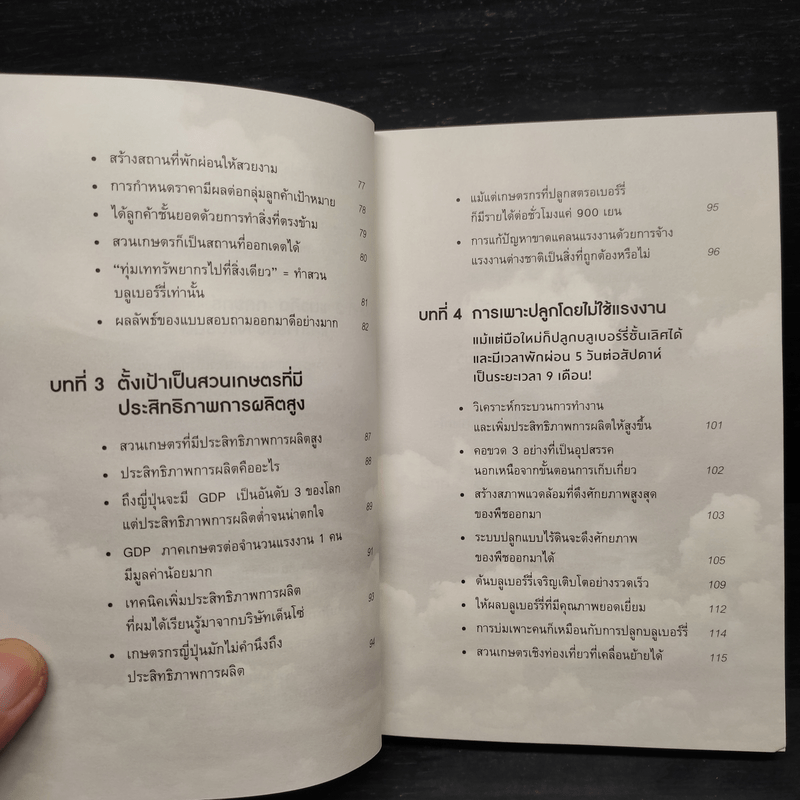 • สร้างสถานที่พักผ่อนให้สวยงาม 77
• การกำหนดราคามีผลต่อกลุ่มลูกค้าเป้าหมาย 78
• ได้ลูกค้าชั้นยอดด้วยการทำสิ่งที่ตรงข้าม 79
• สวนเกษตรก็เป็นสถานที่ออกเดตได้ 80
• “ทุ่มเททรัพยากรไปที่สิ่งเดียว” = ทำสวน
บลูเบอร์รี่เท่านั้น 81
• ผลลัพธ์ของแบบสอบถามออกมาดีอย่างมาก 82
บทที่ 3 ตั้งเป้าเป็นสวนเกษตรที่มี
ประสิทธิภาพการผลิตสูง
• สวนเกษตรที่มีประสิทธิภาพการผลิตสูง 87
• ประสิทธิภาพการผลิตคืออะไร 88
• ถึงญี่ปุ่นจะมี GDP เป็นอันดับ 3 ของโลก
แต่ประสิทธิภาพการผลิตต่ำจนน่าตกใจ 89
• GDP ภาคเกษตรต่อจำนวนแรงงาน 1 คน
มีมูลค่าน้อยมาก 91
• เทคนิคเพิ่มประสิทธิภาพการผลิต
ที่ผมได้เรียนรู้มาจากบริษัทเด็นโซ่ 93
• เกษตรกรญี่ปุ่นมักไม่คำนึงถึง
ประสิทธิภาพการผลิต 94
• แม้แต่เกษตรกรที่ปลูกสตรอเบอร์รี่
ก็มีรายได้ต่อชั่วโมงแค่ 900 เยน 95
• การแก้ปัญหาขาดแคลนแรงงานด้วยการจ้าง
แรงงานต่างชาติเป็นสิ่งที่ถูกต้องหรือไม่ 96
บทที่ 4 การเพาะปลูกโดยไม่ใช้แรงงาน
แม้แต่มือใหม่ก็ปลูกบลูเบอร์รี่ชั้นเลิศได้
และมีเวลาพักผ่อน 5 วันต่อสัปดาห์
เป็นระยะเวลา 9 เดือน!
• วิเคราะห์กระบวนการทำงาน
และเพิ่มประสิทธิภาพการผลิตให้สูงขึ้น 101
• คอขวด 3 อย่างที่เป็นอุปสรรค
นอกเหนือจากขั้นตอนการเก็บเกี่ยว 102
• สร้างสภาพแวดล้อมที่ดึงศักยภาพสูงสุด
ของพืชออกมา 103
• ระบบปลูกแบบไร้ดินจะดึงศักยภาพ
ของพืชออกมาได้ 105
• ต้นบลูเบอร์รี่เจริญเติบโตอย่างรวดเร็ว 109
• ให้ผลบลูเบอร์รี่ที่มีคุณภาพยอดเยี่ยม 112
• การบ่มเพาะคนก็เหมือนกับการปลูกบลูเบอร์รี่ 114
• สวนเกษตรเชิงท่องเที่ยวที่เคลื่อนย้ายได้ 115